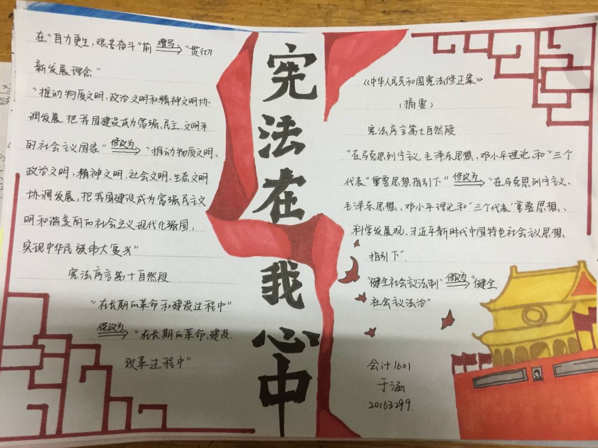 在"自力更生,艰苦奋斗"前增写"贯彻
新发展理念"
"推动物质文明,政治文明和精神文明协
调发展,把我国建设成为富强,民主,文明
的社会主义国家"修改为"推动物质文明、
政治文明,精神文明,社会文明,生态文明
协调发展,把我国建设成为富强民主文
明和谐美丽的社会主义现代化强国,
实现中华民族伟大复兴"
宪法序言第十自然段
"在长期的革命和建设过程中"
修改为"在长期的革命、建设、
改革过程中"
宪法在我心中
《中华人民共和国宪法修正案》
(摘要)
宪法序言第七自然段
"在马克思列宁主义、毛泽东思想、邓小平理论和"三个
代表"重要思想指引下"修改为"在马克思列宁主义、
毛泽东思想、邓小平理论和"三个代表"重要思想、
科学发展观、习近平新时代中国特色社会主义思想、
指引下"
"健全社会主义法制"修改为"健全
社会主义法治"
会计1601
于涵
20163299